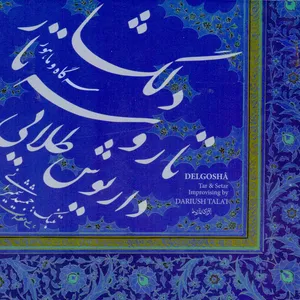 دلگشا
سه گاه و ماهور
تار و سه تار
داریوش طلایی
DELGOSHÂ
Tar & Setar
Improvising by
DARIUSH TALA'I